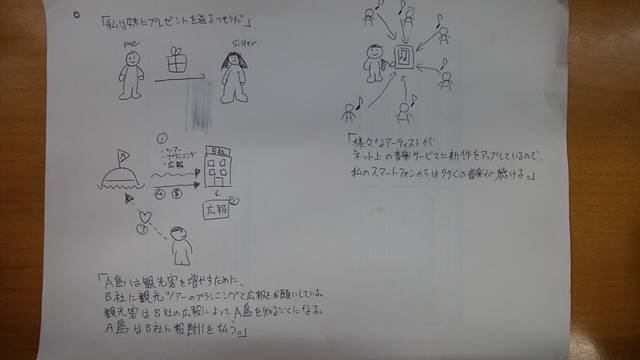 「私は妹にプレゼントを送るつもりだ」
me
sister
①
・ツアー
プランニング
・広報
B社
A
④ $
広報
②
③
「A島は観光客を増やすために、
B社に観光ツアーのプランニングと広報をお願いしている。
観光客はB社の広報によってA島を知ることになる。
A島はB社へ報酬を払う。」
「様々なアーティストが
ネット上の音楽サービスに新作をアップしているので、
私のスマートフォンからは多くの音楽が聴ける。」